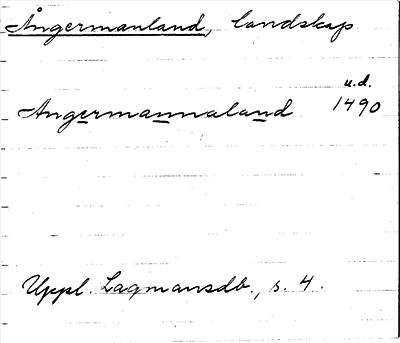 Ångermanland, landskap
u.d.
Angermannaland 1490
Uppl. Lagmansdb., s. 4.